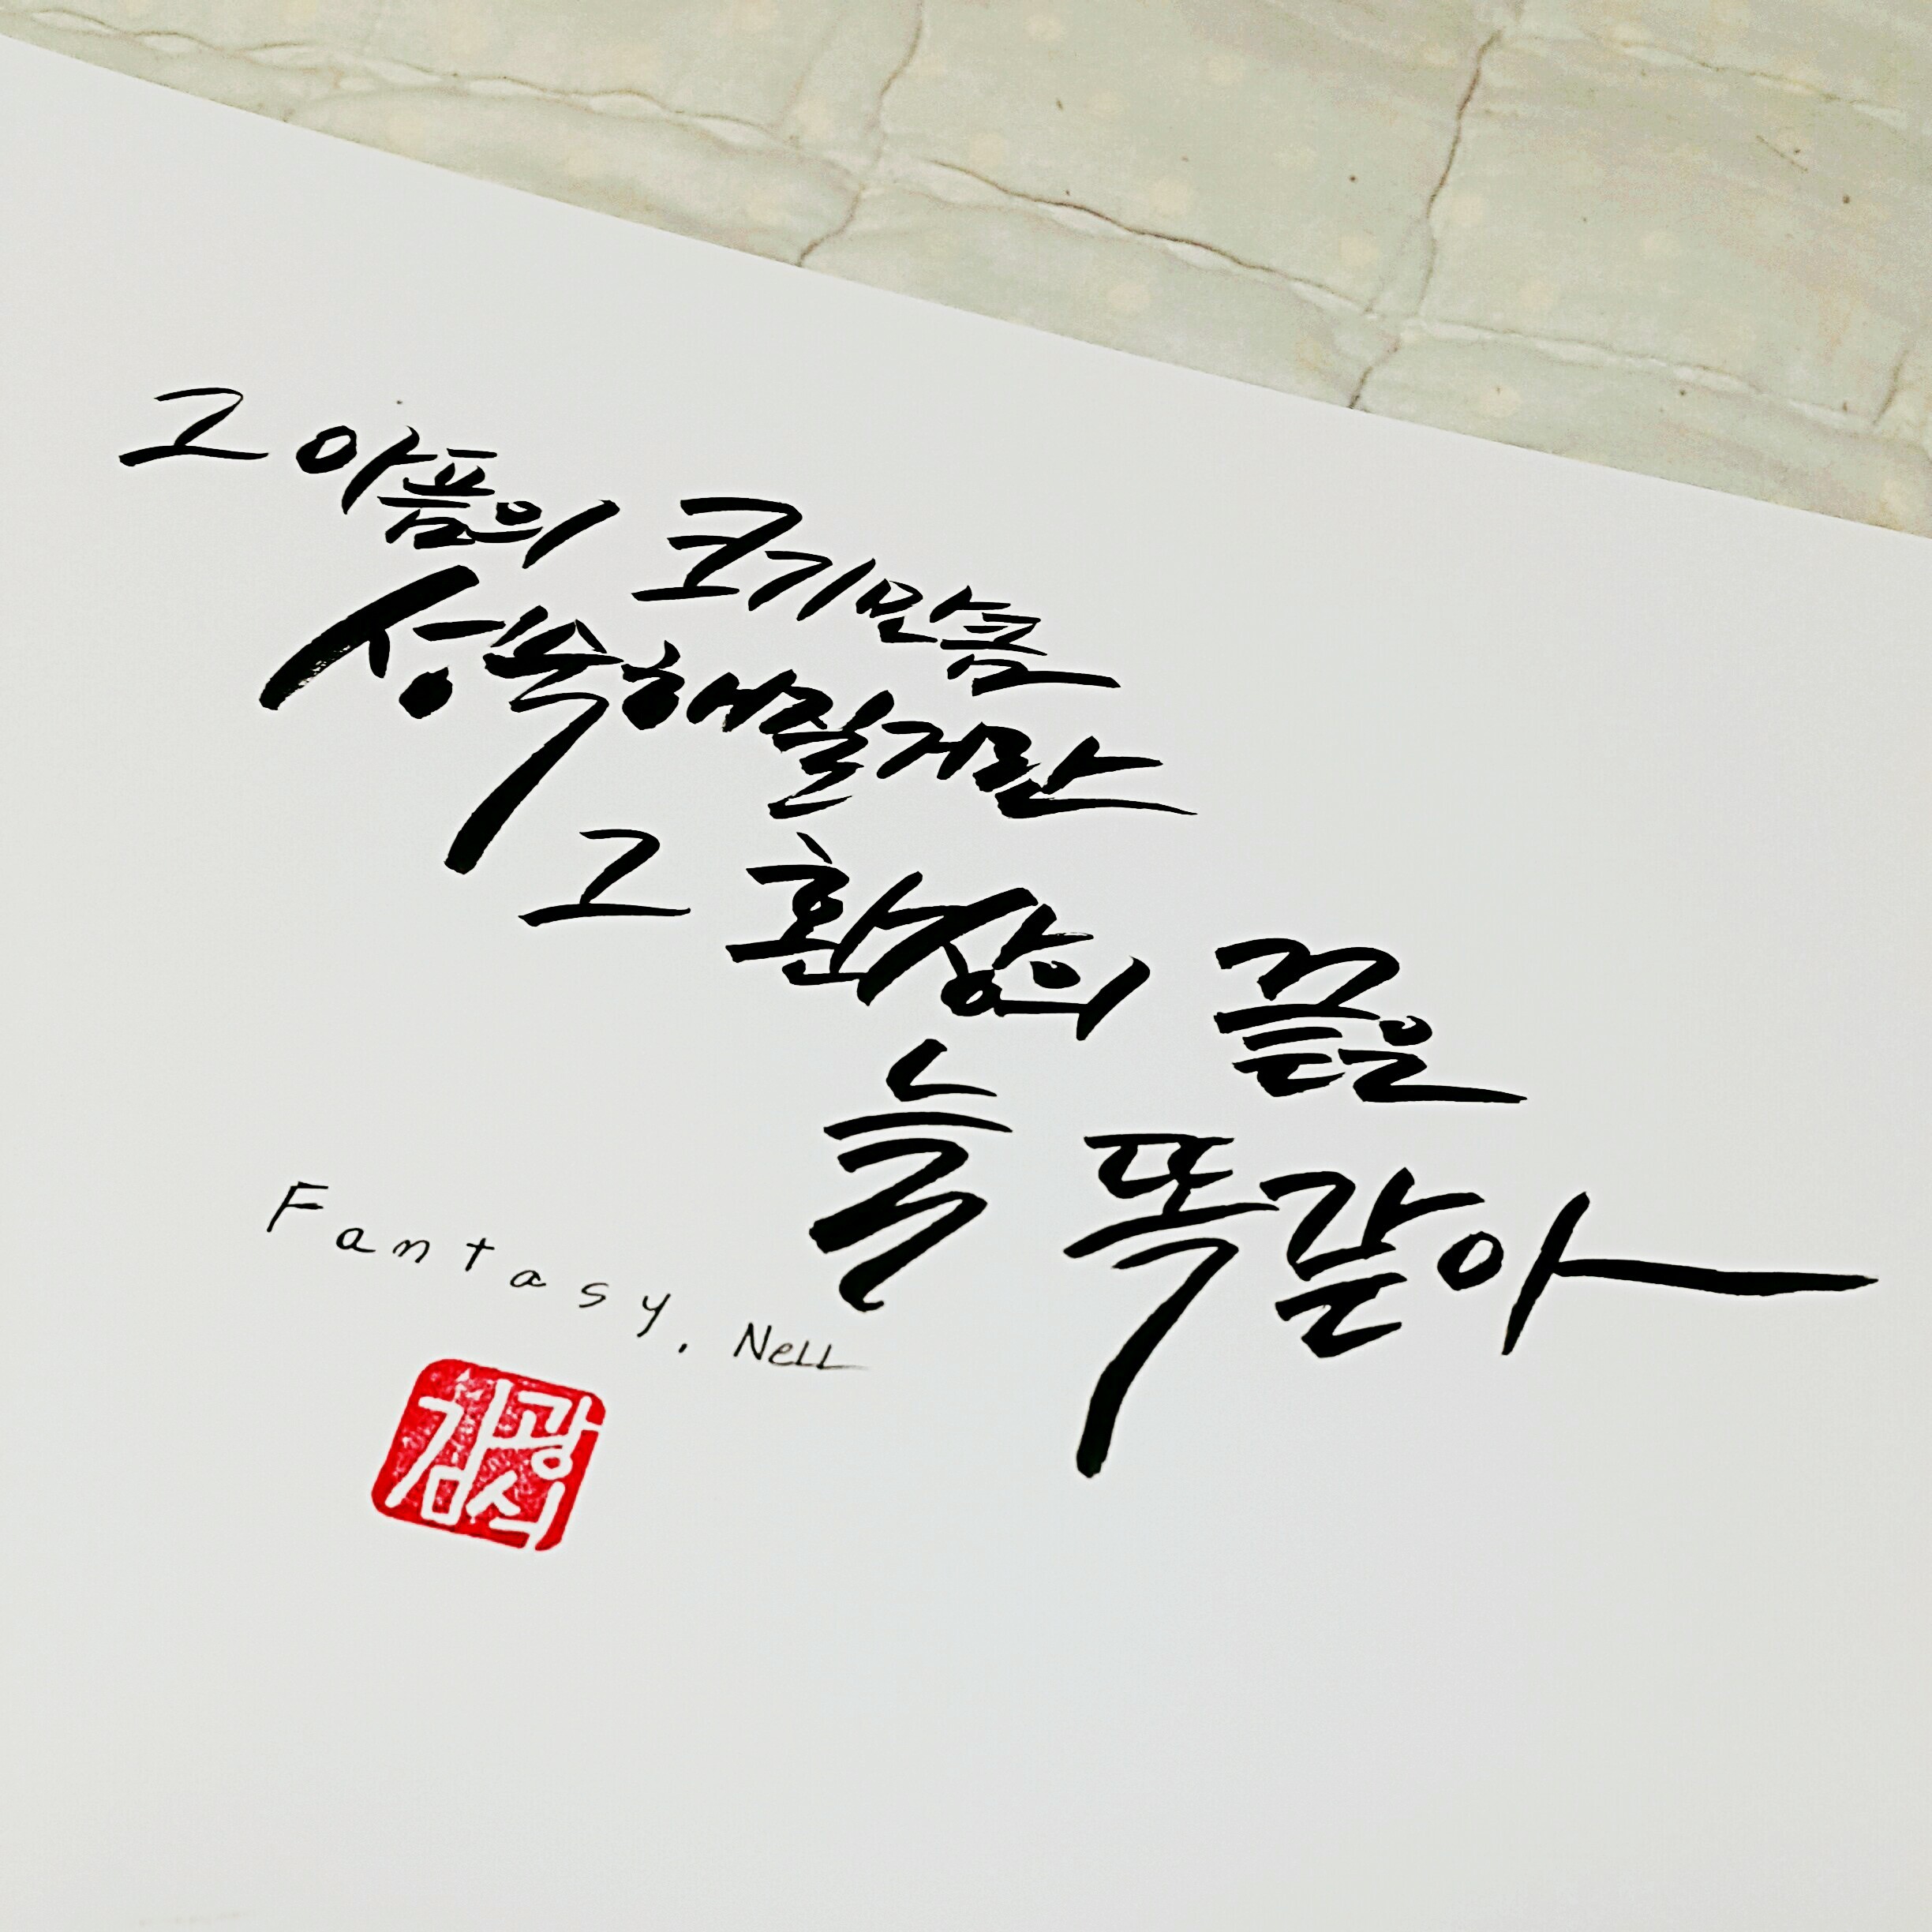 그 아픔의 크기만큼
성숙해질거란
그 환상의 끝은
늘 똑같아
Fantasy, Nell
김광식